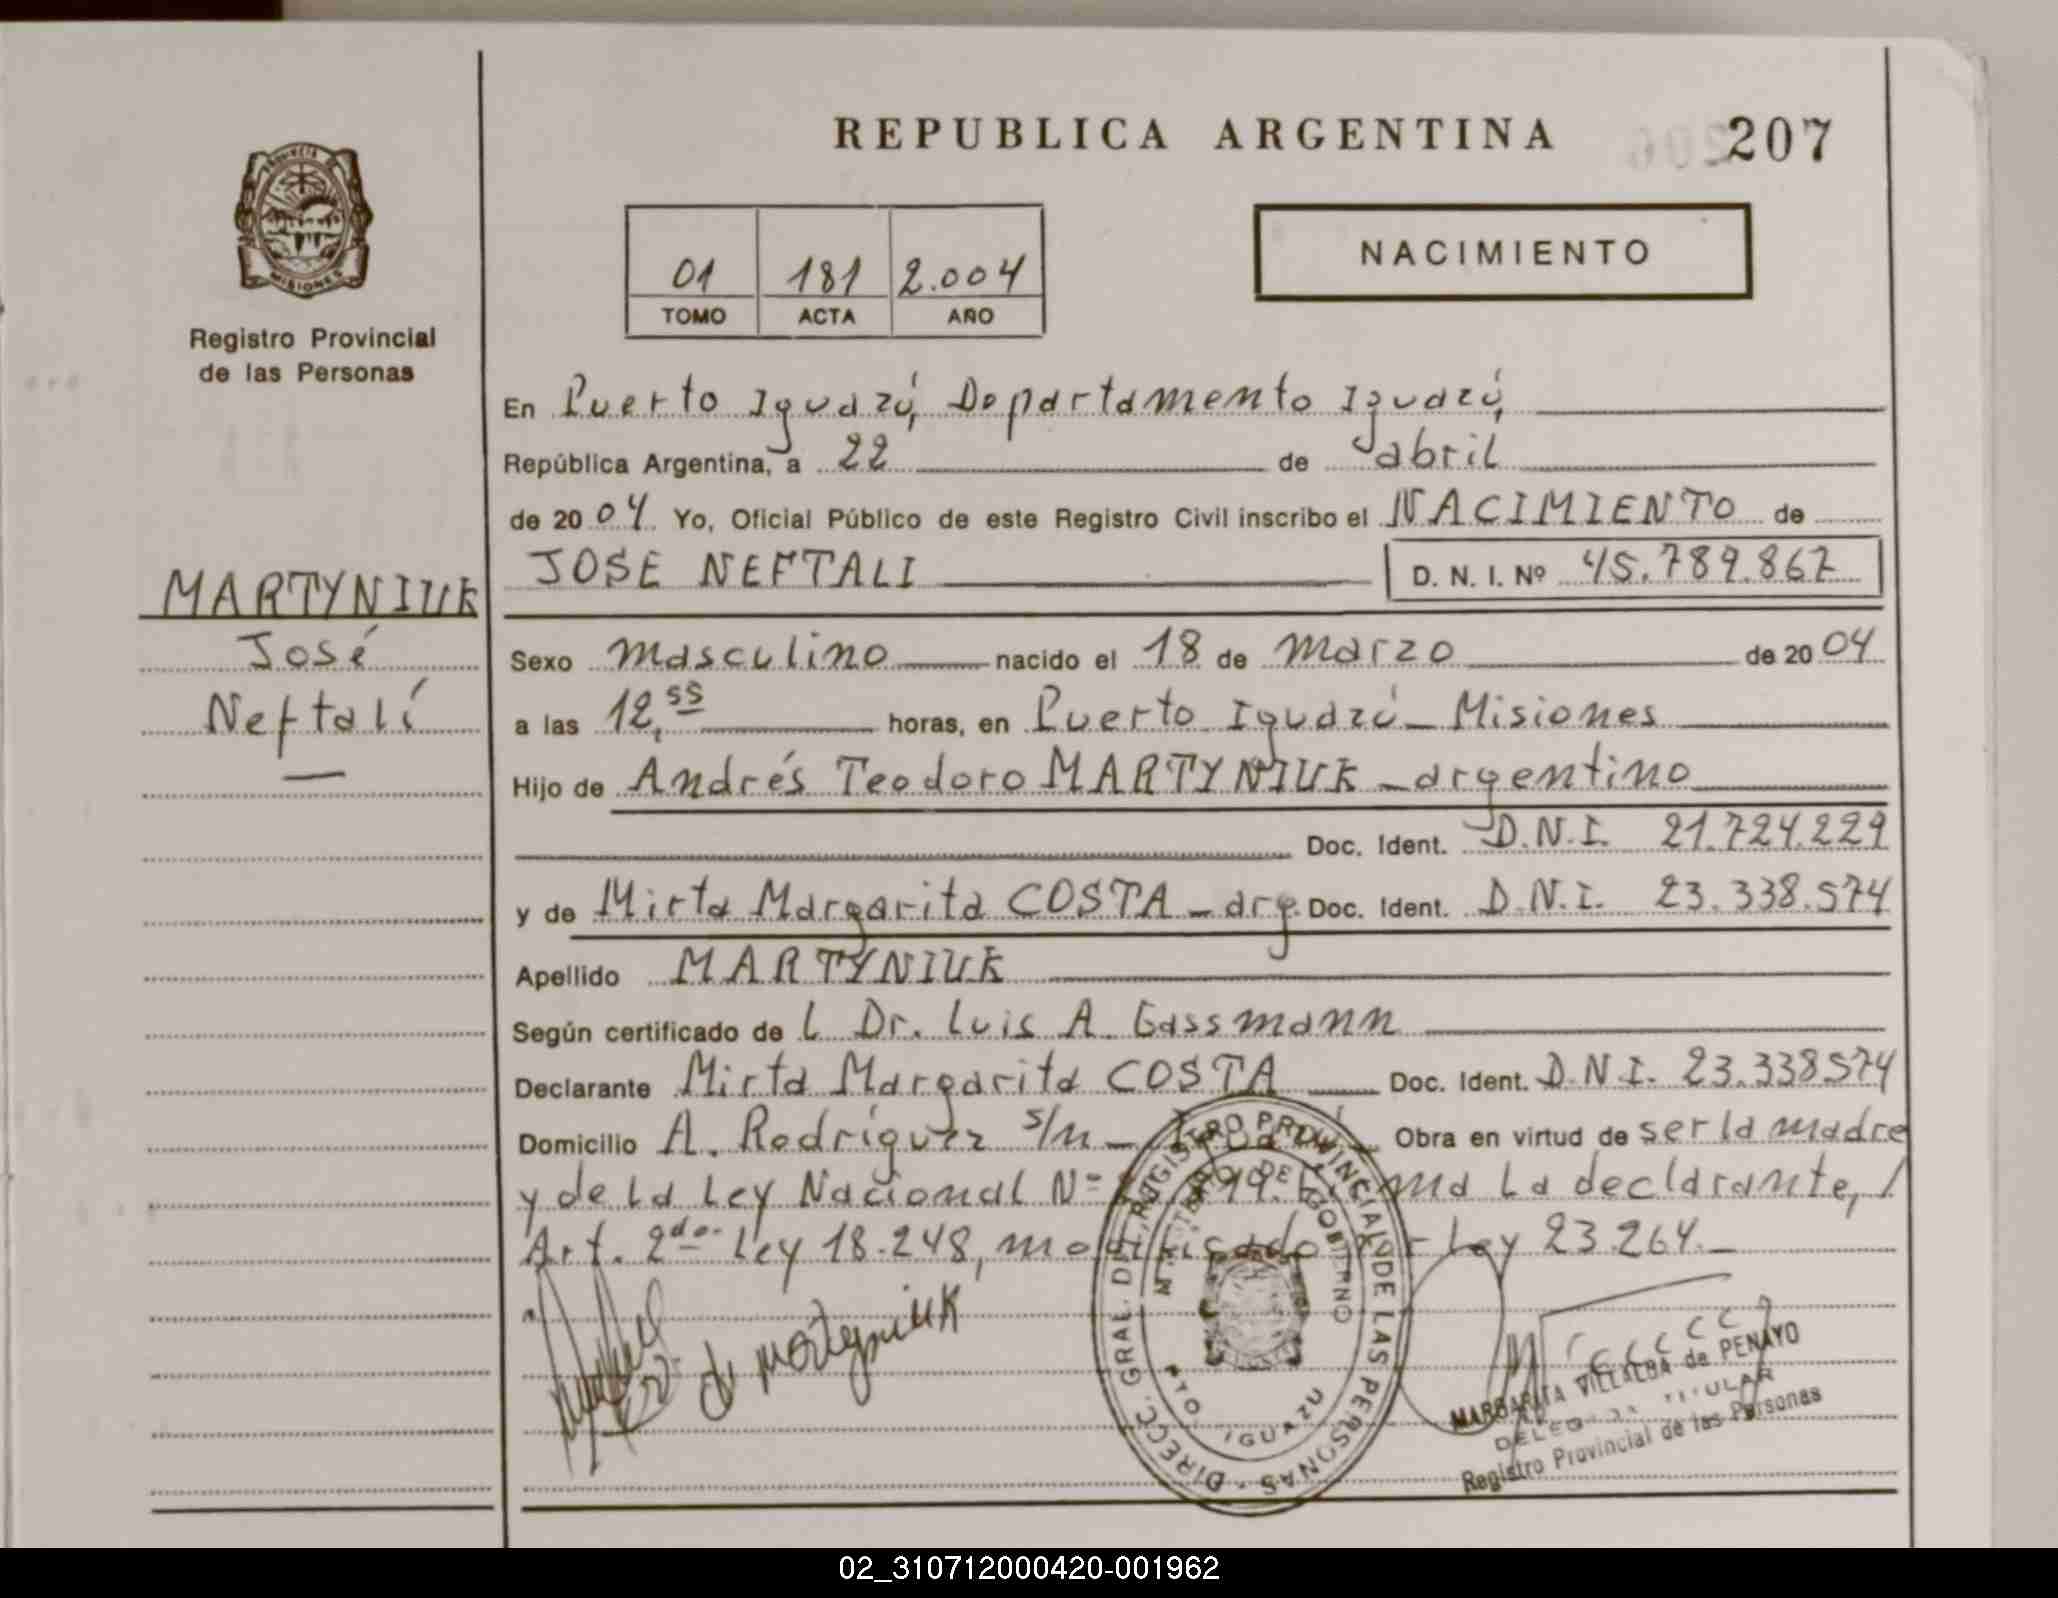 REPUBLICA ARGENTINA
207
PROVINCIA DE
MISIONES
Registro Provincial
de las Personas
01 181 2.004
TOMO ACTA AÑO
NACIMIENTO
En Puerto Iguazú, Departamento Iguazú,
República Argentina, a 22 de abril
de 2004 Yo, Oficial Público de este Registro Civil inscribo el NACIMIENTO de
JOSE NEFTALI D. N. I. Nº 45.789.867
MARTYNIUK
José
Neftalí
Sexo masculino nacido el 18 de marzo de 2004
a las 12,55 horas, en Puerto Iguazú - Misiones
Hijo de Andrés Teodoro MARTYNIUK - argentino
Doc. Ident. D.N.I. 21.724.229
y de Mirta Margarita COSTA - arg. Doc. Ident. D.N.I. 23.338.574
Apellido MARTYNIUK
Según certificado de L Dr. Luis A. Gassmann
Declarante Mirta Margarita COSTA Doc. Ident. D.N.I. 23.338574
Domicilio A. Rodríguez s/n - Obra en virtud de ser la madre
y de la Ley Nacional Nº la declarante, /
Art. 2do. Ley 18.248, Ley 23.264.-
de Martyniuk
DIRECC. GRAL. DEL REGISTRO PROVINCIAL DE LAS PERSONAS
DE GOBIERNO
PTO. IGUAZU
MARGARITA VILLALBA de PENAYO
TITULAR
Registro Provincial de las Personas
02_310712000420-001962